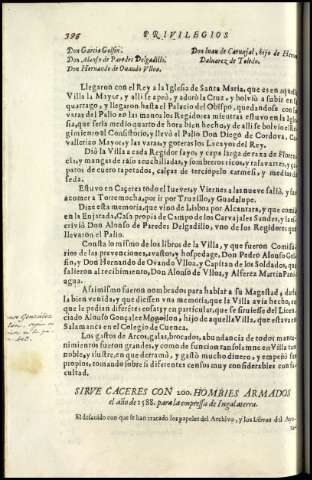 396 PRIVILEGIOS
Don Garcia Golfin. Don Iuan de Caruajal, hijo de Hernā
Don Alonso de Paredes Delgadillo. Daluarez de Toledo.
Don Hernando de Ouando Vlloa.
Llegaron con el Rey a la Iglesia de Santa Maria, que es en aquella
Villa la Mayor, y alli se apeò, y adorò la Cruz, y bolviò a subir en
quartago, y llegaron hasta el Palacio del Obispo, quedandose con las
varas del Palio en las manos los Regidores mientras estuvo en la Igle
sia, que seria medio quarto de hora bien hecho, y de alli se bolviò el Re
gimiento al Consistorio, llevò el Palio Don Diego de Cordova, Ca
vallerizo Mayor, y las varas, y goteras los Lacayos del Rey.
Diò la Villa a cada Regidor sayo, y capa larga de raza de Floren
cia, y mangas de raso acuchilladas, y sombreros ricos, y
patos de cuero tapetados, calças de terciopelo carmesi, y medias de
seda.
Estuvo en Caceres todo el Iueves, y Viernes a las nueve saliò, y fue
a comer a Torremocha, por ir por Truxillo, y Guadalupe.
Dize esta memoria, que vino de Lisboa por Alcantara, y que comiò
en la Enjatada, Casa propia de Campo de los Carvajales Sander, y la es
criviò Don Alonso de Paredes Delgadillo, vno de los Regidores que
llevaron el Palio.
Consta lo mismo de los libros de la Villa, y que fueron Comissa
rios de las prevenciones, avastos, y hospedage, Don Pedro Alonso Golfin,
y Don Hernando de Ovando Vlloa, y Capitan de los Soldados, que
salieron al recibimiento, Don Alonso de Vlloa, y Alferez Martin Pania
agua.
Assimismo fueron nombrados para hablar a su Magestad, darle
la bien venida, y que diessen vna memoria, que la Villa avia hecho, en
que le pedian diferentes cosas; y en particular, que se sirviesse del Licen
ciado Alonso Gonçalez Mogollon, hijo de aquella Villa, que estava en
Salamanca en el Colegio de Cuenca.
Los gastos de Arcos, galas, brocados, abundancia de todos mante-
nimientos fueron grandes, y como de funcion tan solemne en Villa tan
noble, y ilustre, en que derramò, y gastò mucho dinero, y empeñò sus
propios, tomando sobre si diferentes censos muy considerables con fa-
cultad.
SIRVE CACERES CON 200. HOMBRES ARMADOS
el año de 1588. para la empressa de Ingalaterra.
El descuido con que se han tratado los papeles del Archivo, y los Libros del Ayu-